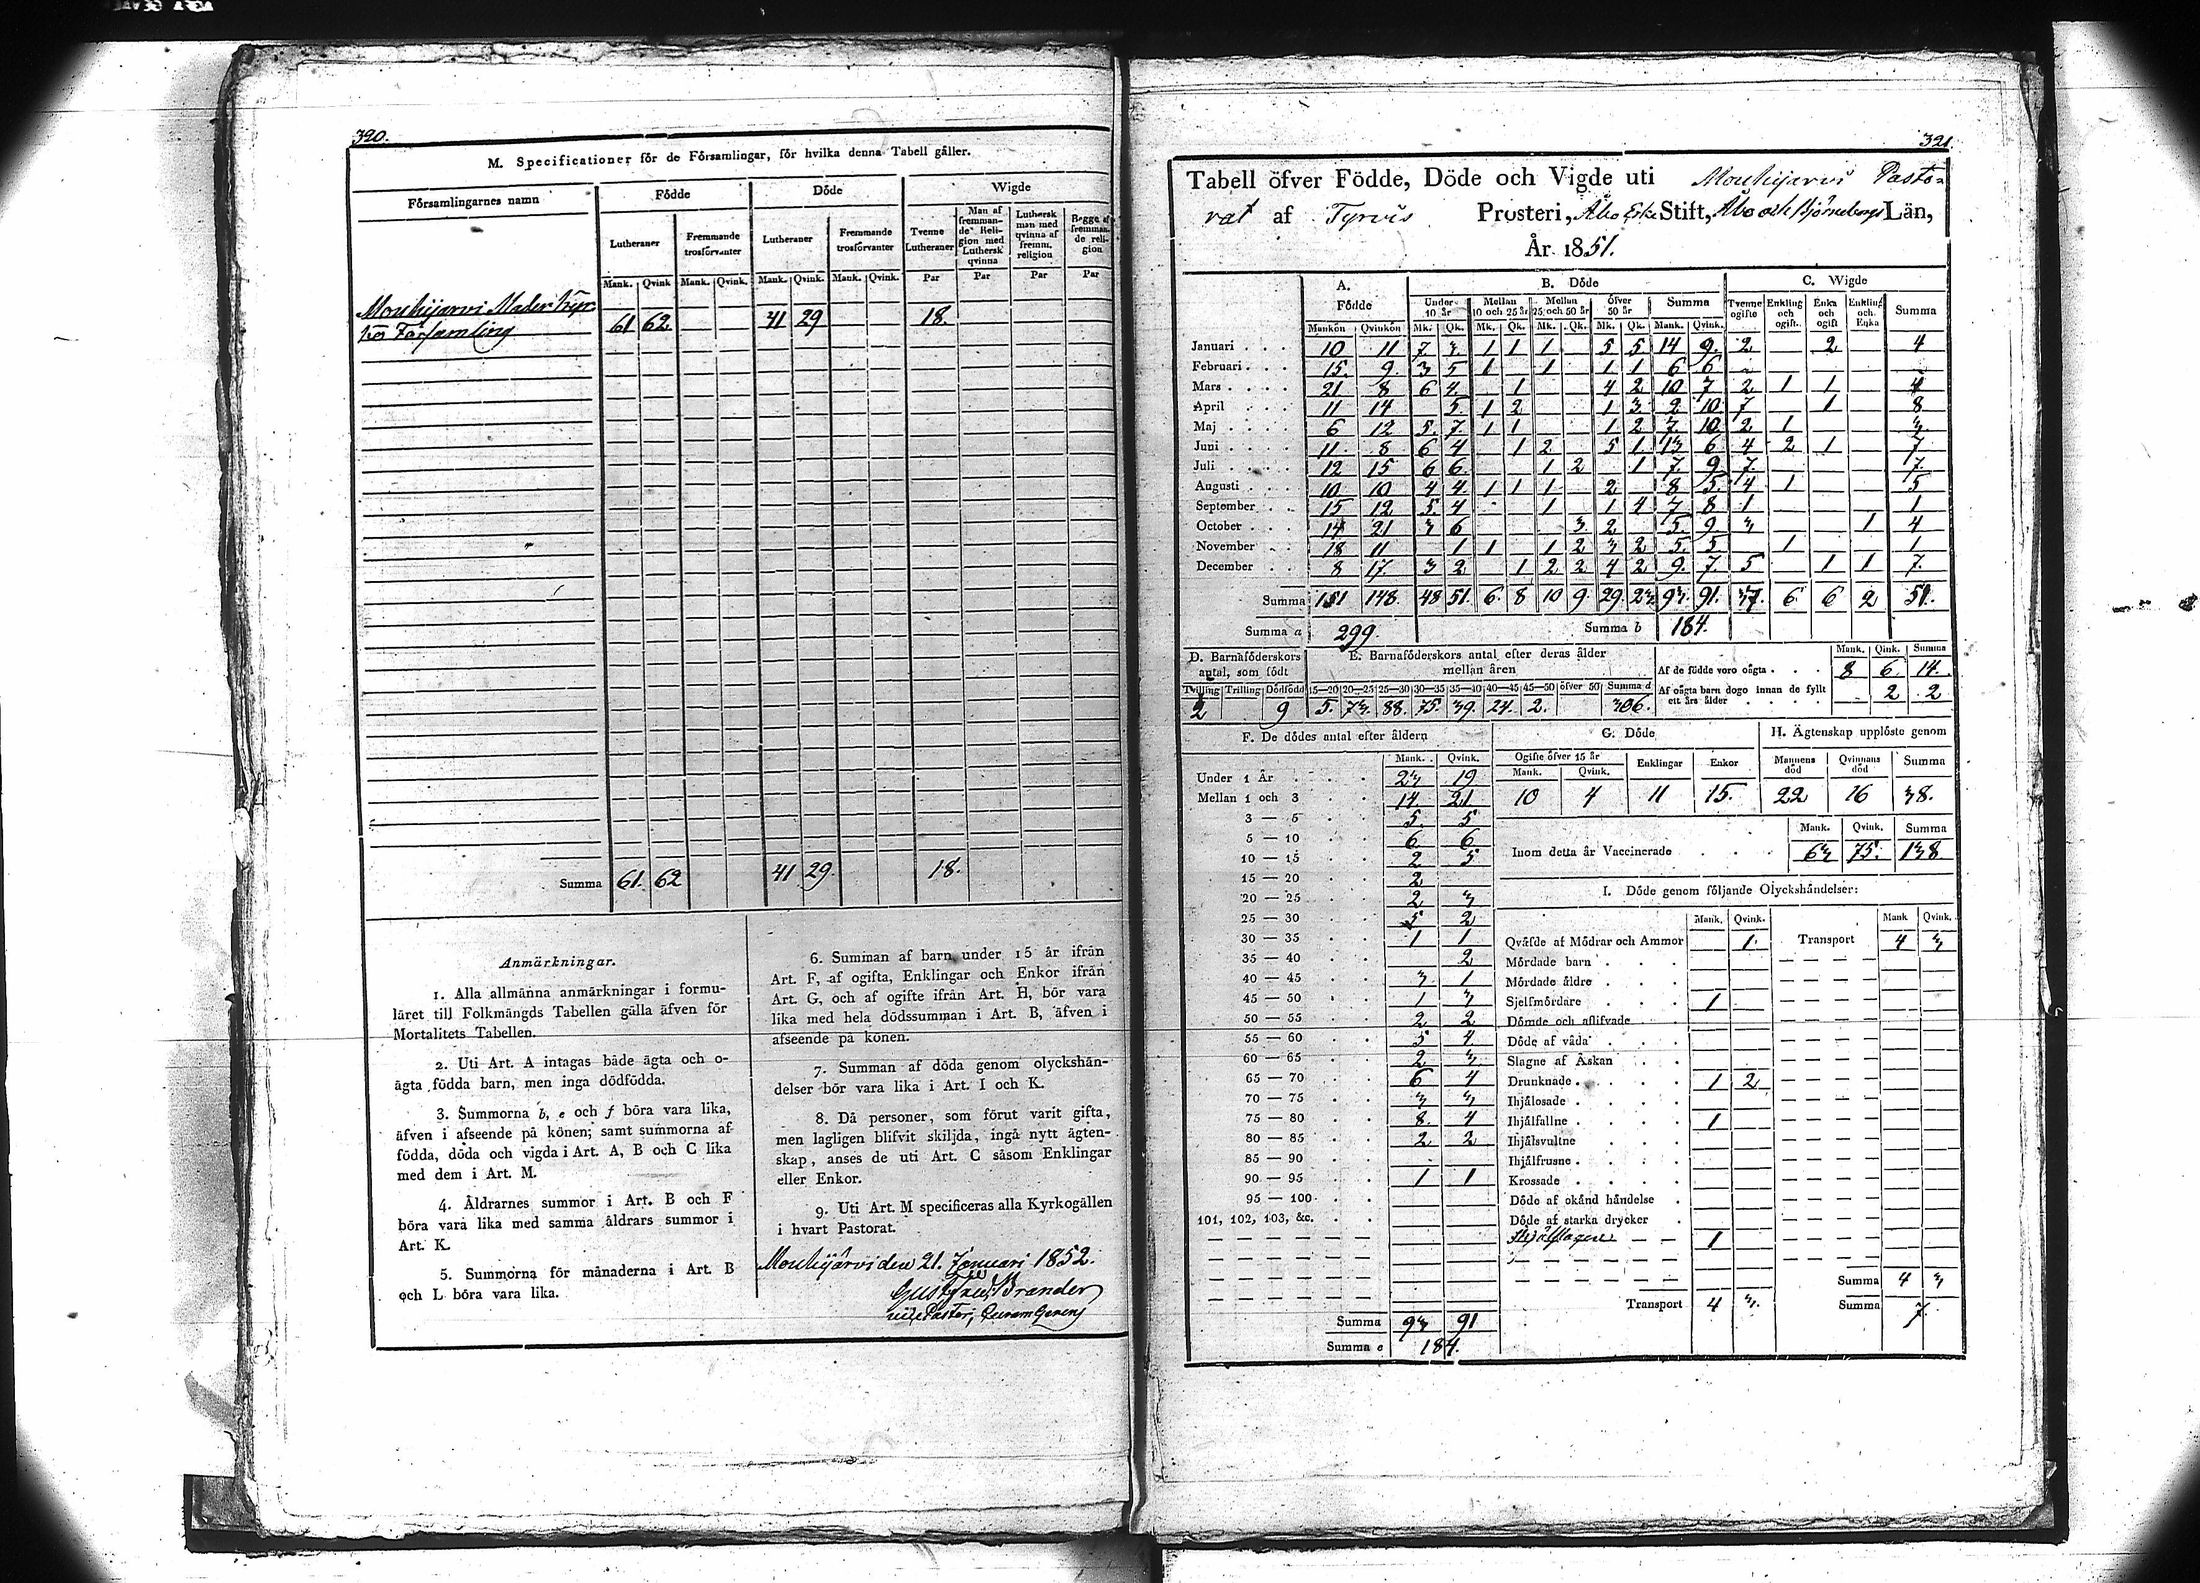 320.
M. Specificationer för de Församlingar, för hvilka denna Tabell gäller.
Församlingarnes namn
Födde
Döde
Wigde
Lutheraner
Fremmande trosförvanter
Lutheraner
Fremmande trosförvanter
Tvenne Lutheraner
Man af fremmande Religion med Luthersk qvinna
Luthersk man med qvinna af fremm. religion
Begge af fremmande religion
Mank. Qvink Mank. Qvink. Mank. Qvink. Mank. Qvink. Par Par Par Par
Mouhijärvi Moder Kyr-
ko Församling 61 62 41 29 18.
Summa 61. 62 41 29. 18.
Anmärkningar.
1. Alla allmänna anmärkningar i formu-
läret till Folkmängds Tabellen gälla äfven för
Mortalitets Tabellen.
2. Uti Art. A intagas både ägta och o-
ägta födda barn, men inga dödfödda.
3. Summorna b, e och f böra vara lika,
äfven i afseende på könen; samt summorna af
födda, döda och vigda i Art. A, B och C lika
med dem i Art. M.
4. Åldrarnes summor i Art. B och F
böra vara lika med samma åldrars summor i
Art. K.
5. Summorna för månaderna i Art. B
och L böra vara lika.
6. Summan af barn under 15 år ifrån
Art. F, af ogifta, Enklingar och Enkor ifrån
Art. G, och af ogifte ifrån Art. H, bör vara
lika med hela dödssumman i Art. B, äfven i
afseende på könen.
7. Summan af döda genom olyckshän-
delser bör vara lika i Art. I och K.
8. Då personer, som förut varit gifta,
men lagligen blifvit skiljda, ingå nytt ägten-
skap, anses de uti Art. C såsom Enklingar
eller Enkor.
9. Uti Art. M specificeras alla Kyrkogällen
i hvart Pastorat.
Mouhijärvi den 21. Januari 1852.
Gust. Fred. Brander
321
Tabell öfver Födde, Döde och Vigde uti Mouhijärvi Pasto-
rat af Tyrvis Prosteri, Åbo Erke Stift, Åbo och Björneborgs Län,
År 1851.
A. Födde
B. Döde
C. Wigde
Under 10 år
Mellan 10 och 25 år
Mellan 25 och 50 år
öfver 50 år
Summa
Tvenne ogifte
Enkling och ogift.
Enka och ogift
Enkling och Enka
Summa
Mankön Qvinkön Mk. Qk. Mk. Qk. Mk. Qk. Mk. Qk. Mank. Qvink.
Januari 10 11 7 3. 1 1 1 5 5 14 9. 2 2 4
Februari 15. 9. 3 5 1 1 1 1 6 6
Mars 21 8 6 4 1 4 2 10 7 2 1 1 4
April 11 14 5 1 2 1 3 2 10 7 1 8
Maj 6 12 5. 7. 1 1 1 2 7. 10 2 1 3
Juni 11 8 6 4 1 2 5 1 13 6 4 2 1 7
Juli 12 15 6 6 1 2 1 7 9 7. 7.
Augusti 10 10 4 4. 1 1 1 2 8 5. 4 1 5
September 15 12 5. 4 1 1 4 7 8 1 1
October 14 21 3 6 3 2 5. 9 3 1 4
November 18 11 1 1 1 2 3 2 5. 5 1 1
December 8 17. 3 2 1 2 2 4 2 9. 7. 5 1 1 7.
Summa 151 148. 48 51. 6. 8 10 9 29. 23 93. 91. 37. 6 6 2 51.
Summa a 299. Summa b 184.
D. Barnaföderskors antal, som födt
E. Barnaföderskors antal efter deras ålder mellan åren
Mank. Qink. Summa
Af de födde voro oägta 8 6 14.
Af oägta barn dogo innan de fyllt ett års ålder 2 2
Tvilling Trilling Dödfödd 15—20 20—25 25—30 30—35 35—40 40—45 45—50 öfver 50 Summa d
2 9 5. 73. 88. 75. 39. 24. 2. 306.
F. De dödes antal efter åldern
Mank. Qvink.
Under 1 År 23 19
Mellan 1 och 3 14. 21
3 — 5 5. 5
5 — 10 6 6
10 — 15 2 5
15 — 20 2
20 — 25 2 3
25 — 30 5 2
30 — 35 1 1
35 — 40 2
40 — 45 3. 1
45 — 50 1 3
50 — 55 2 2
55 — 60 5 4
60 — 65 2 3.
65 — 70 6 4
70 — 75 3 3
75 — 80 8. 4
80 — 85 2 2
85 — 90
90 — 95 1 1
95 — 100
101, 102, 103, &c.
Summa 93 91
Summa e 184.
G. Döde
Ogifte öfver 15 år Enklingar Enkor
Mank. Qvink.
10 4 11 15.
H. Ägtenskap upplöste genom
Mannens död Qvinnans död Summa
22 16 38.
Mank. Qvink. Summa
Inom detta år Vaccinerade 63 75. 138
I. Döde genom följande Olyckshändelser:
Mank. Qvink. Mank Qvink.
Qväfde af Mödrar och Ammor 1. Transport 4 3
Mördade barn
Mördade äldre
Sjelfmördare 1
Dömde och aflifvade
Döde af våda
Slagne af Åskan
Drunknade 1 2
Ihjälosade
Ihjälfallne 1
Ihjälsvultne
Ihjälfrusne
Krossade
Döde af okänd händelse
Döde af starka drycker
Ihjälslagne 1
Summa 4 3
Transport 4 3. Summa 7.